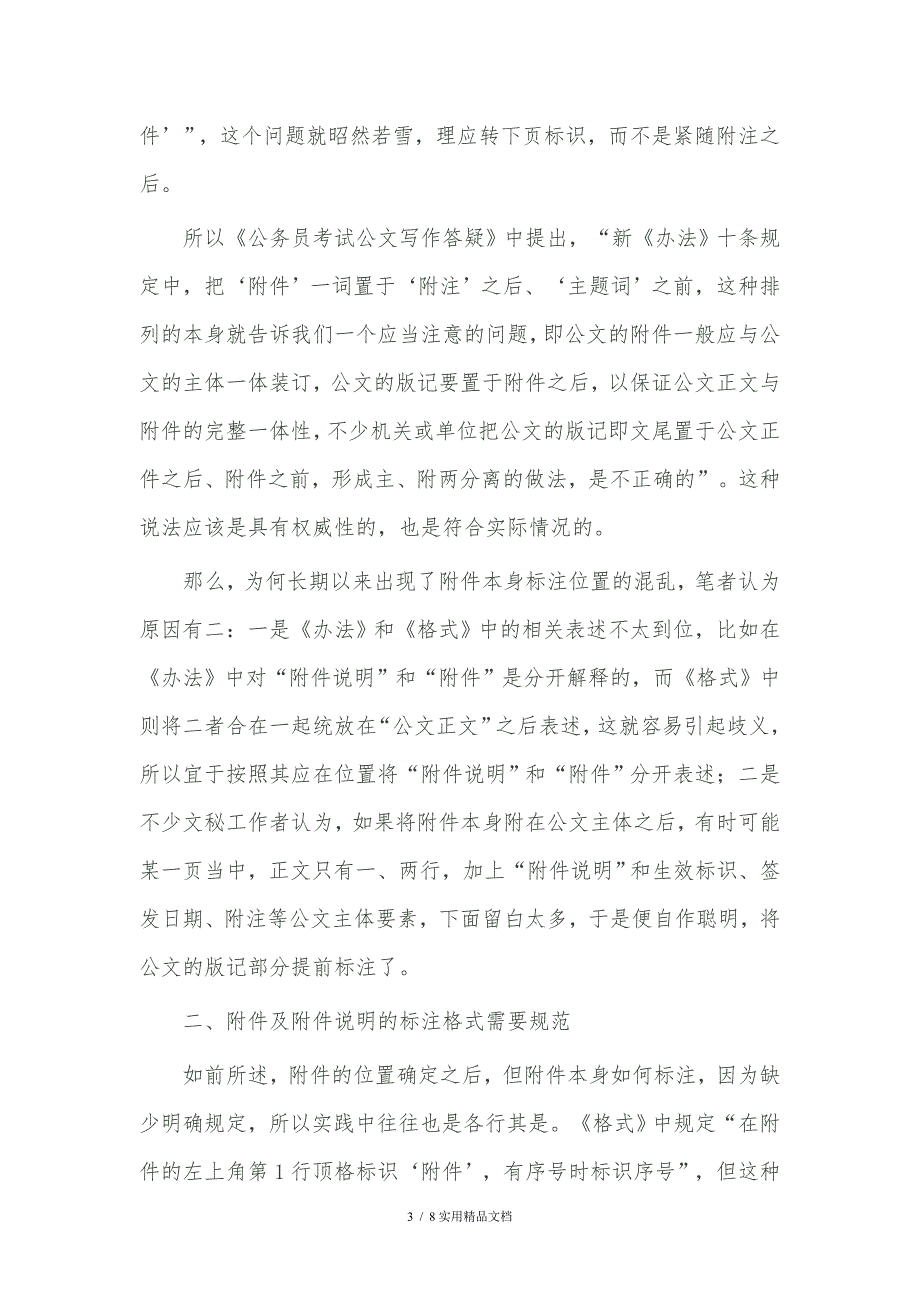 件’”，这个问题就昭然若雪，理应转下页标识，而不是紧随附注之
后。
所以《公务员考试公文写作答疑》中提出，“新《办法》十条规
定中，把‘附件’一词置于‘附注’之后、‘主题词’之前，这种排
列的本身就告诉我们一个应当注意的问题，即公文的附件一般应与公
文的主体一体装订，公文的版记要置于附件之后，以保证公文正文与
附件的完整一体性，不少机关或单位把公文的版记即文尾置于公文正
件之后、附件之前，形成主、附两分离的做法，是不正确的”。这种
说法应该是具有权威性的，也是符合实际情况的。
那么，为何长期以来出现了附件本身标注位置的混乱，笔者认为
原因有二：一是《办法》和《格式》中的相关表述不太到位，比如在
《办法》中对“附件说明”和“附件”是分开解释的，而《格式》中
则将二者合在一起统放在“公文正文”之后表述，这就容易引起歧义，
所以宜于按照其应在位置将“附件说明”和“附件”分开表述；二是
不少文秘工作者认为，如果将附件本身附在公文主体之后，有时可能
某一页当中，正文只有一、两行，加上“附件说明”和生效标识、签
发日期、附注等公文主体要素，下面留白太多，于是便自作聪明，将
公文的版记部分提前标注了。
二、附件及附件说明的标注格式需要规范
如前所述，附件的位置确定之后，但附件本身如何标注，因为缺
少明确规定，所以实践中往往也是各行其是。《格式》中规定“在附
件的左上角第1行顶格标识‘附件’，有序号时标识序号”，但这种
3 / 8实用精品文档